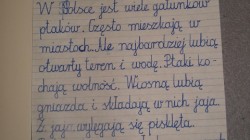 W Polsce jest wiele gatunków
ptaków. Często mieszkają w
miastach. Ale najbardziej lubią
otwarty teren i wodę. Ptaki ko-
chają wolność. Wiosną lubią
gniazda i składają w nich jaja
Z jaja wylegają się pisklęta.